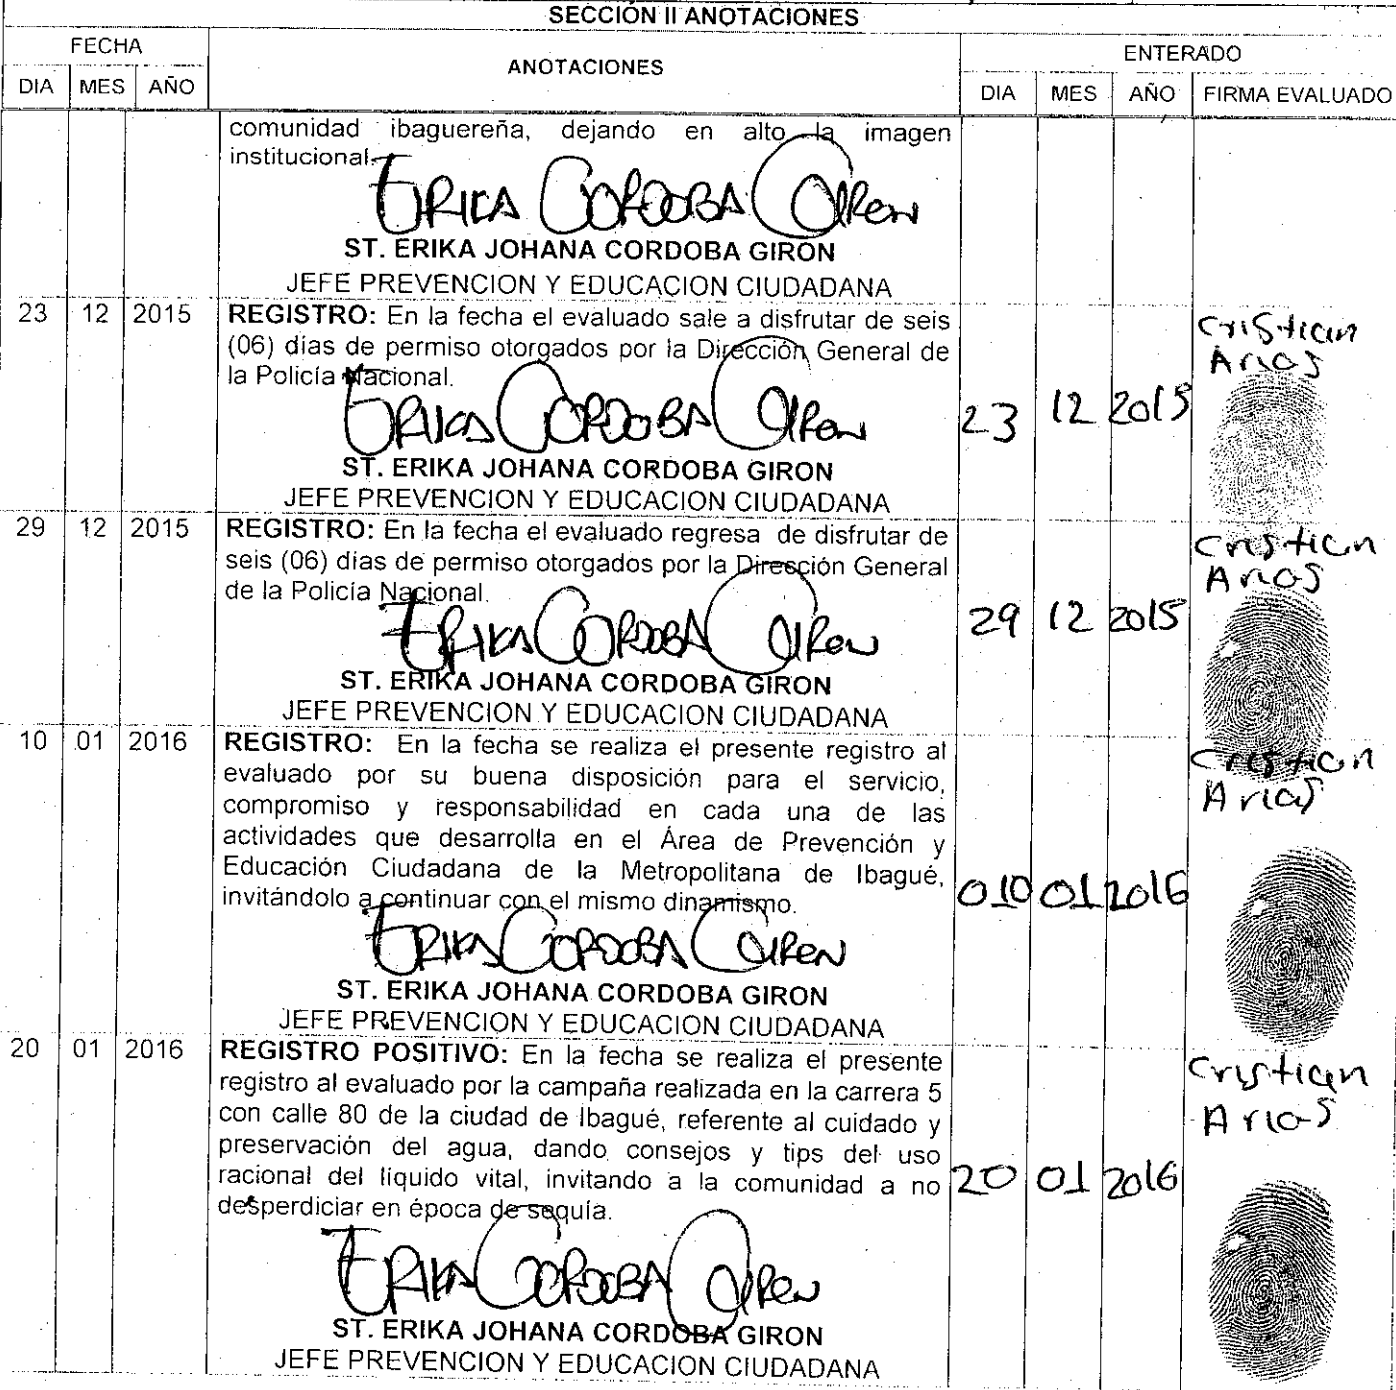 SECCIÓN II ANOTACIONES
FECHA
ANOTACIONES
ENTERADO
DIA MES AÑO
DIA MES AÑO FIRMA EVALUADO
comunidad ibaguereña, dejando en alto la imagen
institucional.
ERIKA CORDOBA GIRON
ST. ERIKA JOHANA CORDOBA GIRON
JEFE PREVENCION Y EDUCACION CIUDADANA
23 12 2015 REGISTRO: En la fecha el evaluado sale a disfrutar de seis
(06) días de permiso otorgados por la Dirección General de
la Policía Nacional.
Cristian
Arias
ERIKA CORDOBA GIRON
23 12 2015
ST. ERIKA JOHANA CORDOBA GIRON
JEFE PREVENCION Y EDUCACION CIUDADANA
29 12 2015 REGISTRO: En la fecha el evaluado regresa de disfrutar de
seis (06) dias de permiso otorgados por la Dirección General
de la Policía Nacional.
Cristian
Arias
ERIKA CORDOBA GIRON
29 12 2015
ST. ERIKA JOHANA CORDOBA GIRON
JEFE PREVENCION Y EDUCACION CIUDADANA
10 01 2016 REGISTRO: En la fecha se realiza el presente registro al
evaluado por su buena disposición para el servicio,
compromiso y responsabilidad en cada una de las
actividades que desarrolla en el Área de Prevención y
Educación Ciudadana de la Metropolitana de Ibagué,
invitándolo a continuar con el mismo dinamismo.
Cristian
Arias
010 01 2016
ERIKA CORDOBA GIRON
ST. ERIKA JOHANA CORDOBA GIRON
JEFE PREVENCION Y EDUCACION CIUDADANA
20 01 2016 REGISTRO POSITIVO: En la fecha se realiza el presente
registro al evaluado por la campaña realizada en la carrera 5
con calle 80 de la ciudad de Ibagué, referente al cuidado y
preservación del agua, dando consejos y tips del uso
racional del líquido vital, invitando a la comunidad a no
desperdiciar en época de sequía.
Cristian
Arias
20 01 2016
ERIKA CORDOBA GIRON
ST. ERIKA JOHANA CORDOBA GIRON
JEFE PREVENCION Y EDUCACION CIUDADANA